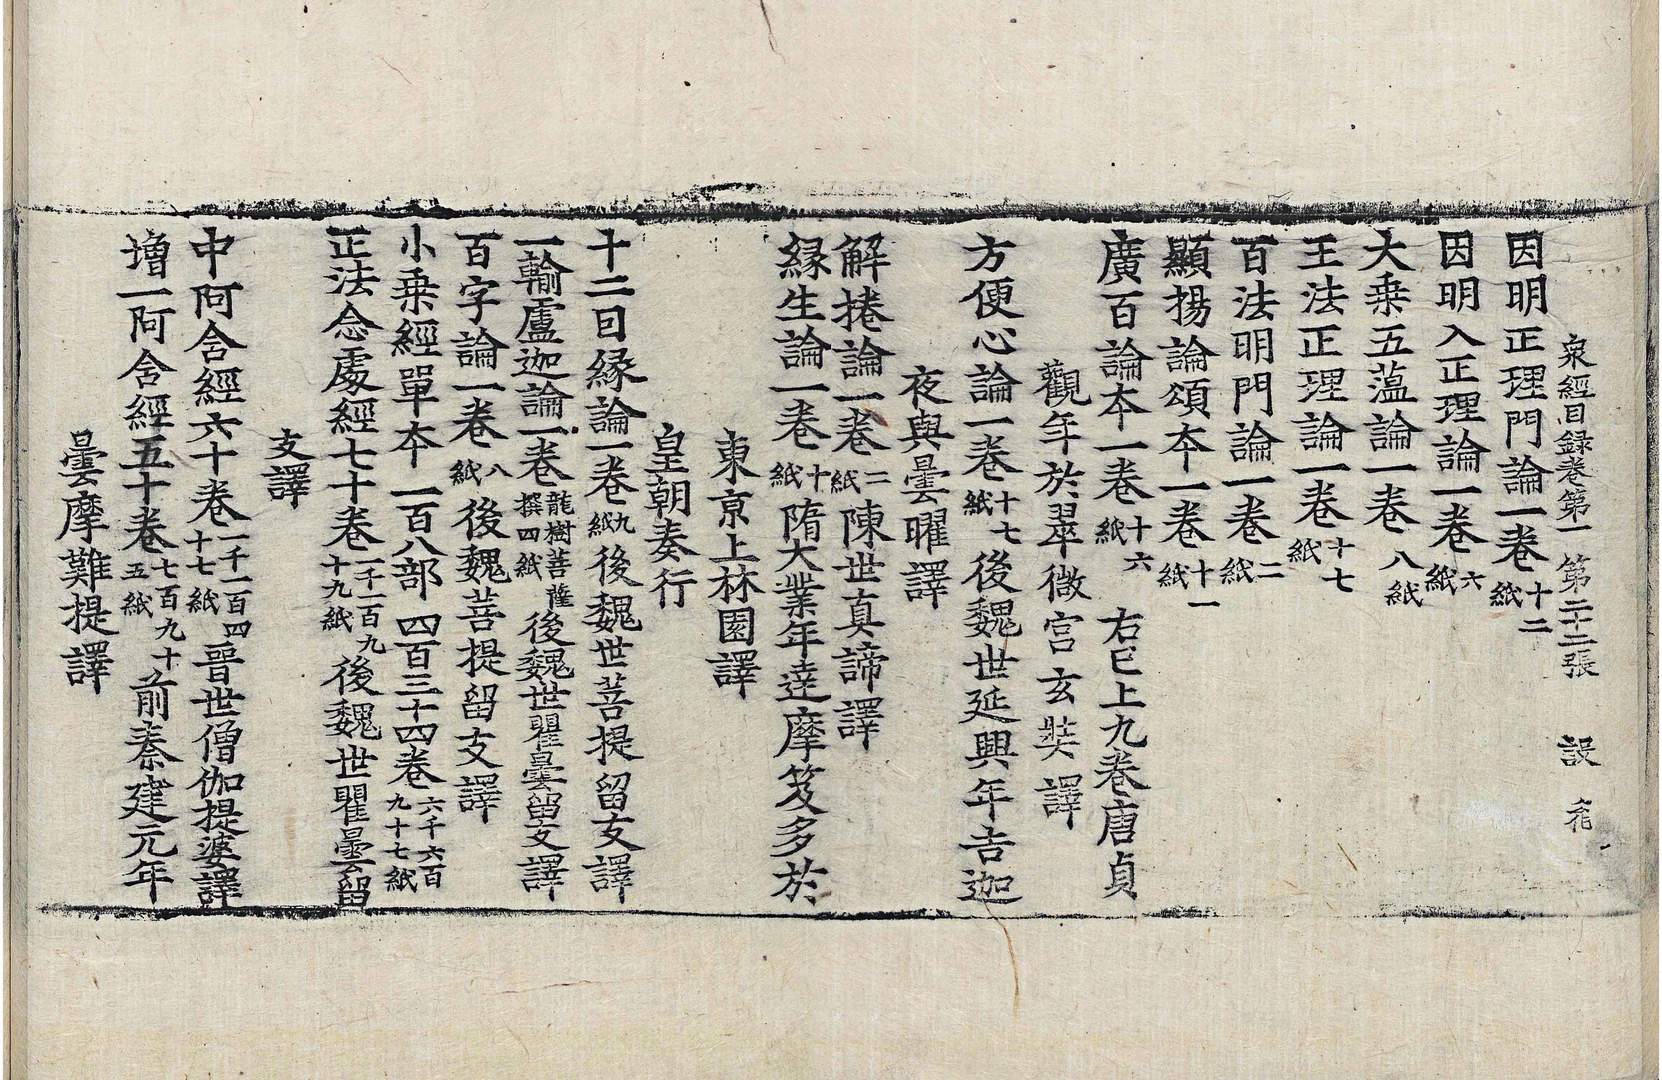 衆經目録卷第一 第二十二張 設
因明正理門論一卷十二紙
因明入正理論一卷六紙
大乗五蕰論一卷八紙
王法正理論一卷十七紙
百法明門論一卷二紙
顯揚論頌夲一卷十一紙
廣百論夲一卷十六紙 右已上九卷唐貞
觀年於翠微宫玄奘譯
方便心論一卷十七紙後魏世延興年吉迦
夜與曇曜譯
解捲論一卷二紙陳世真諦譯
緣生論一卷十紙隋大業年達摩笈多於
東京上林園譯
皇朝奏行
十二因緣論一卷九紙後魏世菩提留支譯
一輸盧迦論一卷龍樹菩薩撰四紙後魏世瞿曇留支譯
百字論一卷八紙後魏菩提留支譯
小乗經單夲 一百八部 四百三十四卷六千六百九十七紙
正法念處經七十卷一千一百九十九紙後魏世瞿曇留
支譯
中阿含經六十卷一千一百四十七紙晉世僧伽提婆譯
增一阿含經五十卷七百九十五紙前秦建元年
曇摩難提譯